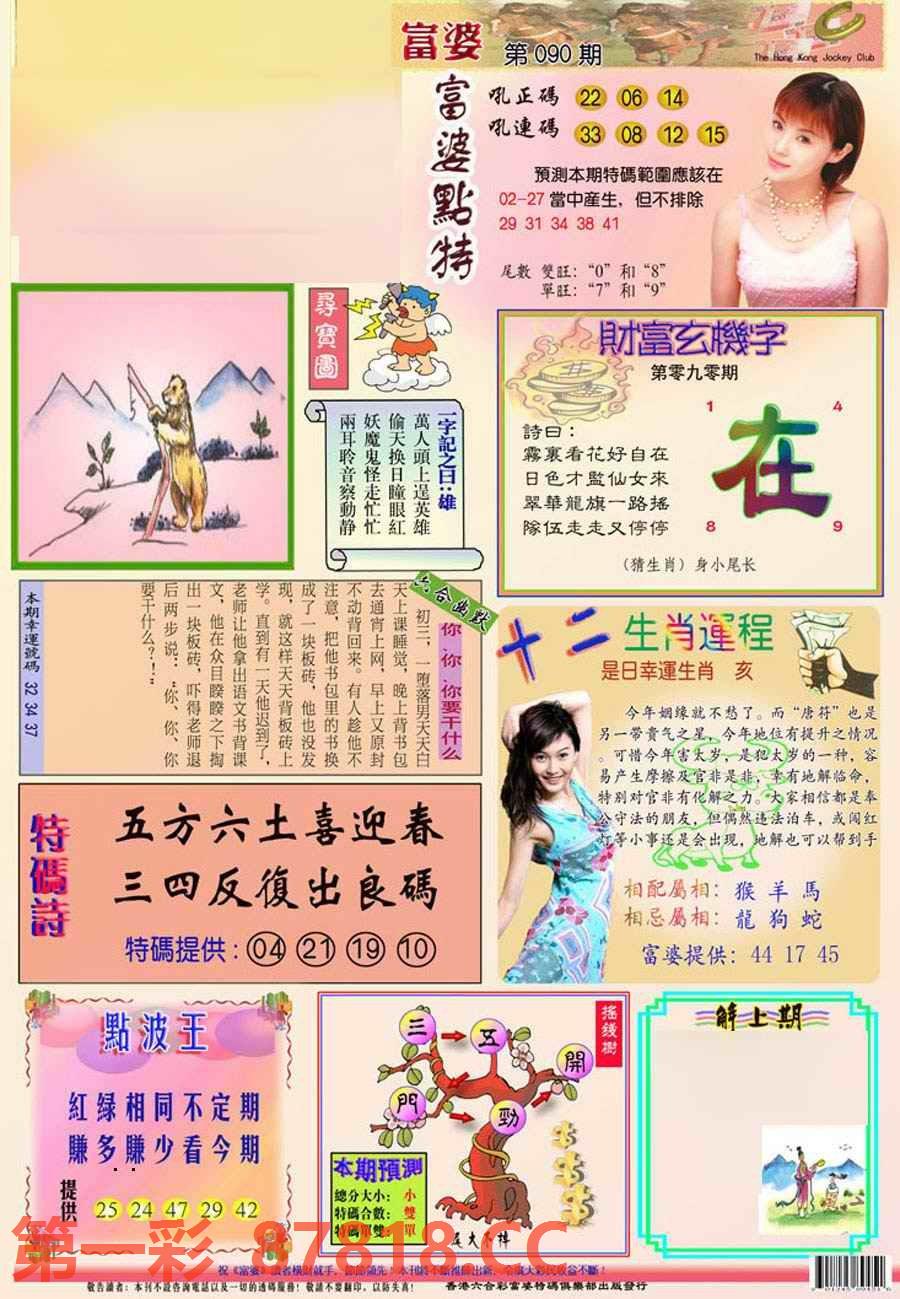 富婆 第 090 期
The Hong Kong Jockey Club
富婆點特
吼正碼 22 06 14
吼連碼 33 08 12 15
預測本期特碼範圍應該在
02-27 當中産生，但不排除
29 31 34 38 41
尾數 雙旺：“0”和“8”
單旺：“7”和“9”
尋寶圖
一字記之曰：雄
萬人頭上逞英雄
偷天换日瞳眼紅
妖魔鬼怪走忙忙
兩耳聆音察動静
財富玄機字
第零九零期
詩曰：
霧裏看花好自在
日色才監仙女來
翠華龍旗一路搖
隊伍走走又停停
1 4
在
8 9
（猜生肖）身小尾长
六合幽默
你．你．你要干什么
初三，一堕落男天天白
天上课睡觉，晚上背书包
去通宵上网，早上又原封
不动背回来。有人趁他不
注意，把他书包里的书换
成了一块板砖，他也没发
现，就这样天天背板砖上
学。直到有一天他迟到了，
老师让他拿出语文书背课
文，他在众目睽睽之下掏
出一块板砖，吓得老师退
后两步说：“你、你、你
要干什么？！”
本期幸運號碼 32 34 37
十二生肖運程
是日幸運生肖 亥
今年姻缘就不愁了。而“唐符”也是
另一带贵气之星，今年地位有提升之情况
。可惜今年害太岁，是犯太岁的一种，容
易产生摩擦及官非是非，幸有地解临命，
特别对官非有化解之力。大家相信都是奉
公守法的朋友，但偶然违法泊车，或闯红
灯等小事还是会出现，地解也可以帮到手
相配屬相：猴 羊 馬
相忌屬相：龍 狗 蛇
富婆提供：44 17 45
特碼詩
五方六土喜迎春
三四反復出良碼
特碼提供：04 21 19 10
點波王
紅緑相同不定期
賺多賺少看今期
提供 25 24 47 29 42
搖錢樹
三 五
開
門 勁
本期預測
總分大小：小
特碼合數：雙
特碼單雙：單
解上期
第一彩 87818.CC
敬告讀者：本刊不設咨詢電話以及一切的透碼服務！敬請不要翻印，以防失真！
香港六合彩富婆特碼俱樂部出版發行